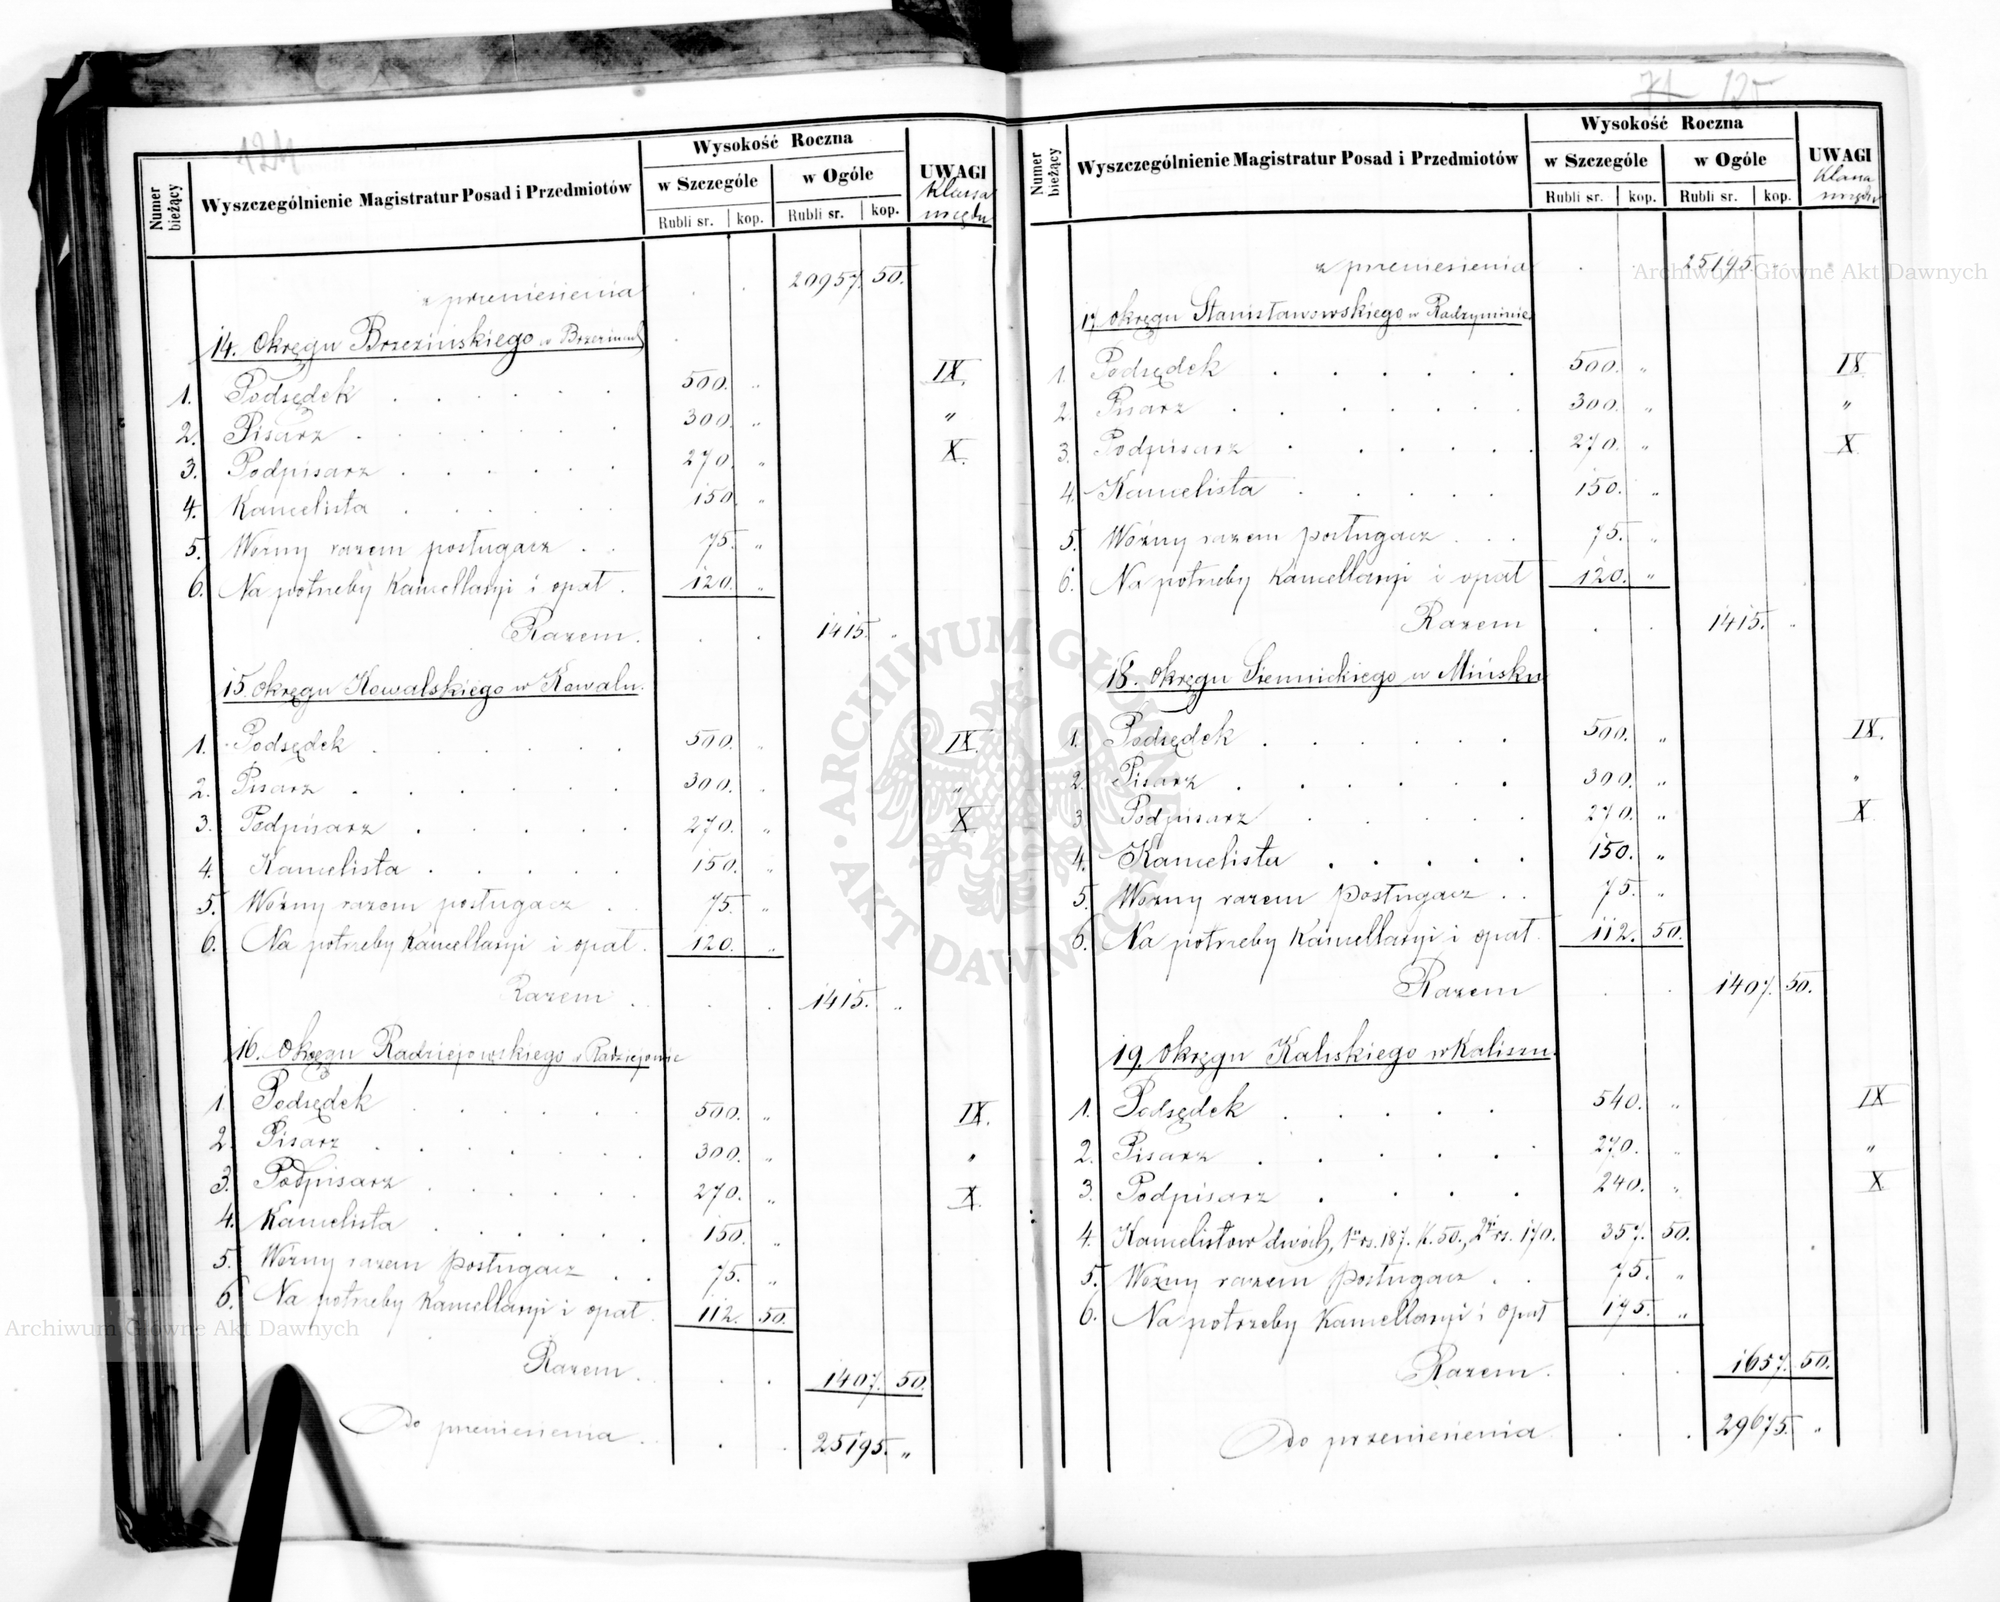 124
Numer bieżący
Wyszczególnienie Magistratur Posad i Przedmiotów
Wysokość Roczna
w Szczególe
w Ogóle
Rubli sr. kop. Rubli sr. kop.
UWAGI
Klassa urzędu
z przeniesienia . . 20957. 50.
14. Okręgu Brzezińskiego w Brzezinach
1. Podsędek . . . . . 500. „ IX.
2. Pisarz . . . . . . 300. „ „
3. Podpisarz . . . . . 270. „ X.
4. Kancelista . . . . . 150. „
5. Woźny razem posługacz . . 75. „
6. Na potrzeby Kancellaryi i opał . 120. „
Razem . . . 1415. „
15. Okręgu Kowalskiego w Kowalu.
1. Podsędek . . . . . 500. „ IX.
2. Pisarz . . . . . . 300. „ „
3. Podpisarz . . . . . 270. „ X.
4. Kancelista . . . . . 150. „
5. Woźny razem posługacz . . 75. „
6. Na potrzeby Kancellaryi i opał . 120. „
Razem . . . 1415. „
16. Okręgu Radziejowskiego w Radziejowie
1. Podsędek . . . . . 500. „ IX.
2. Pisarz . . . . . . 300. „ „
3. Podpisarz . . . . . 270. „ X.
4. Kancelista . . . . . 150. „
5. Woźny razem posługacz . . 75. „
6. Na potrzeby Kancellaryi i opał . 112. 50.
Razem . . . 1407. 50.
Do przeniesienia . . . 25195. „
71 125
Numer bieżący
Wyszczególnienie Magistratur Posad i Przedmiotów
Wysokość Roczna
w Szczególe
w Ogóle
Rubli sr. kop. Rubli sr. kop.
UWAGI
Klassa urzędu
z przeniesienia . . 25195. „
17. Okręgu Stanisławowskiego w Radzyminie
1. Podsędek . . . . . 500. „ IX
2. Pisarz . . . . . . 300. „ „
3. Podpisarz . . . . . 270. „ X
4. Kancelista . . . . 150. „
5. Woźny razem posługacz . . . 75. „
6. Na potrzeby Kancellaryi i opał 120. „
Razem . . 1415. „
18. Okręgu Siennickiego w Mińsku
1. Podsędek . . . . . 500. „ IX.
2. Pisarz . . . . . 300. „ „
3. Podpisarz . . . . . 270. „ X
4. Kancelista . . . . 150. „
5. Woźny razem posługacz . . 75. „
6. Na potrzeby Kancellaryi i opał . 112. 50.
Razem . . 1407. 50.
19. Okręgu Kaliskiego w Kaliszu.
1. Podsędek . . . . 540. „ IX
2. Pisarz . . . . . 270. „ „
3. Podpisarz . . . . 240. „ X
4. Kancelistów dwóch, 1r rs. 187. k. 50., 2gi rs. 170. 357. 50.
5. Woźny razem posługacz . . 75. „
6. Na potrzeby Kancellaryi i opał 175. „
Razem . . . 1657. 50.
Do przeniesienia . . . 29675. „
Archiwum Główne Akt Dawnych
Archiwum Główne Akt Dawnych
ARCHIWUM GŁÓWNE AKT DAWNYCH